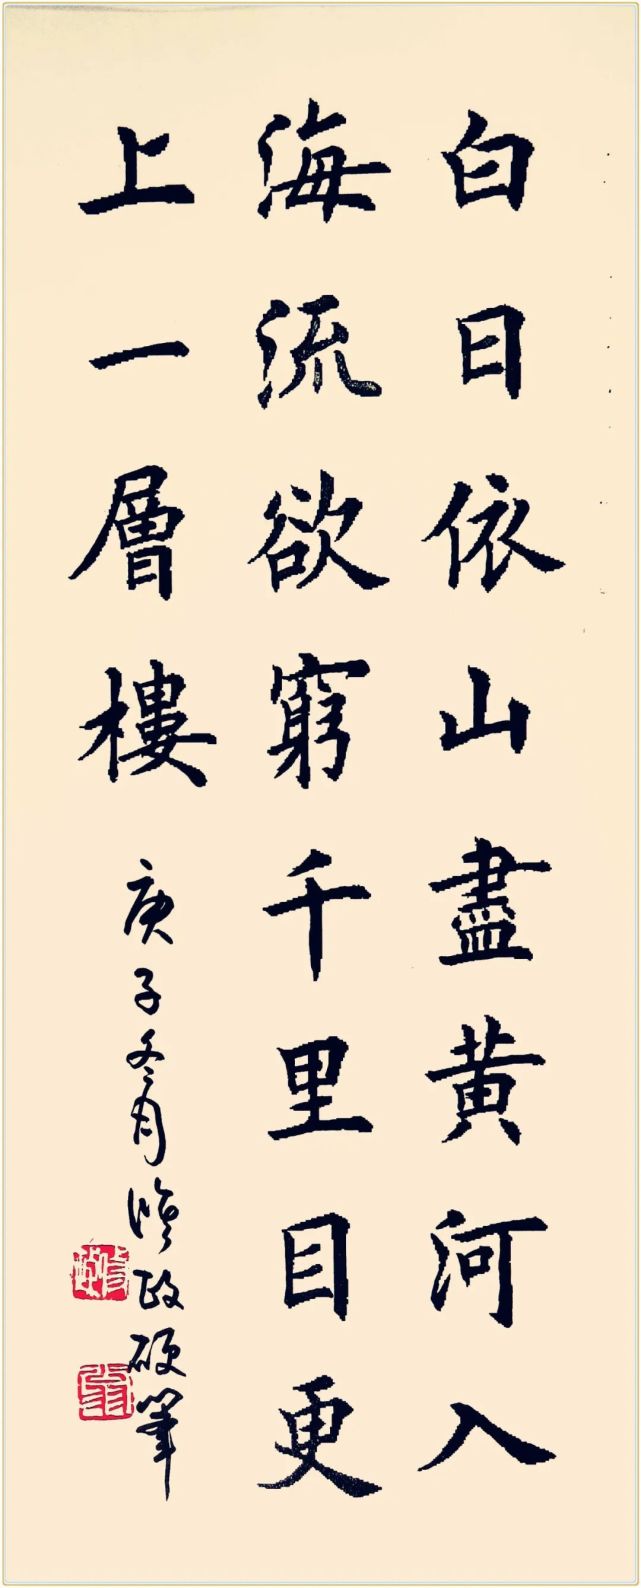 白日依山盡黄河入
海流欲窮千里目更
上一層樓
庚子冬月 政硬筆